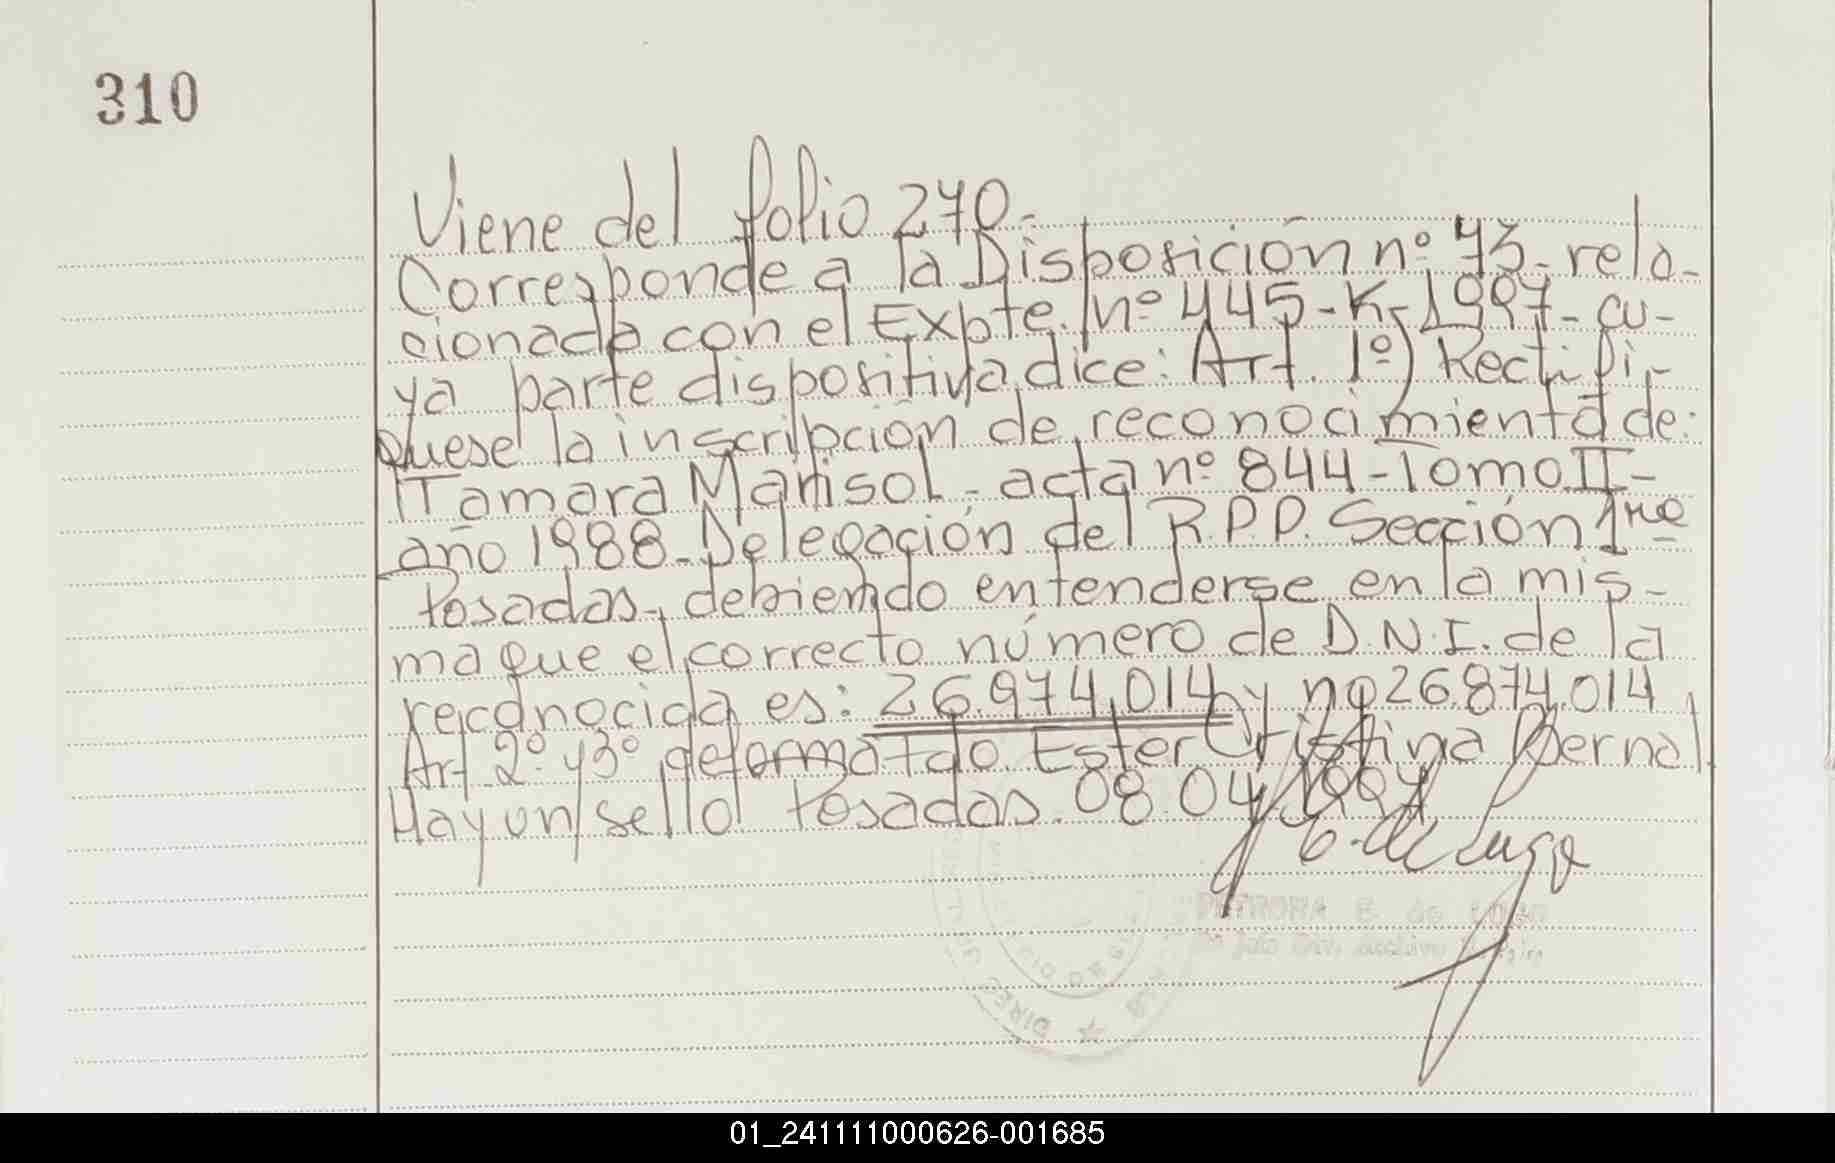 310
Viene del folio 270.-
Corresponde a la Disposición nº 73- rela-
cionada con el Expte. nº 445-K-1997- cu-
ya parte dispositiva dice: Art. 1º) Rectifi-
quese la inscripción de reconocimiento de:
Tamara Marisol - acta nº 844 - Tomo II -
año 1988 - Delegación del R.P.P. Sección 1ra
Posadas, debiendo entenderse en la mis-
ma que el correcto número de D.N.I. de la
reconocida es: 26.974.014 y no 26.874.014,
Art 2º y 3º de forma fdo. Ester Cristina Bernal
Hay un sello Posadas. 08.04.1997
B. de Lugo
PETRONA B. de LUGO
Archivo
DIREC
01_241111000626-001685